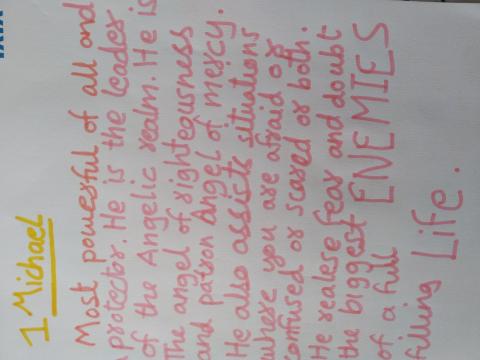 1 Michael
Most powerful of all and
protector. He is the leader
of the Angelic realm. He is
The angel of righteousness
and patron Angel of mercy.
He also assists situations
where you are afraid or
confused or scared or both.
He realese fear and doubt
the biggest ENEMIES
of a full
filling Life.